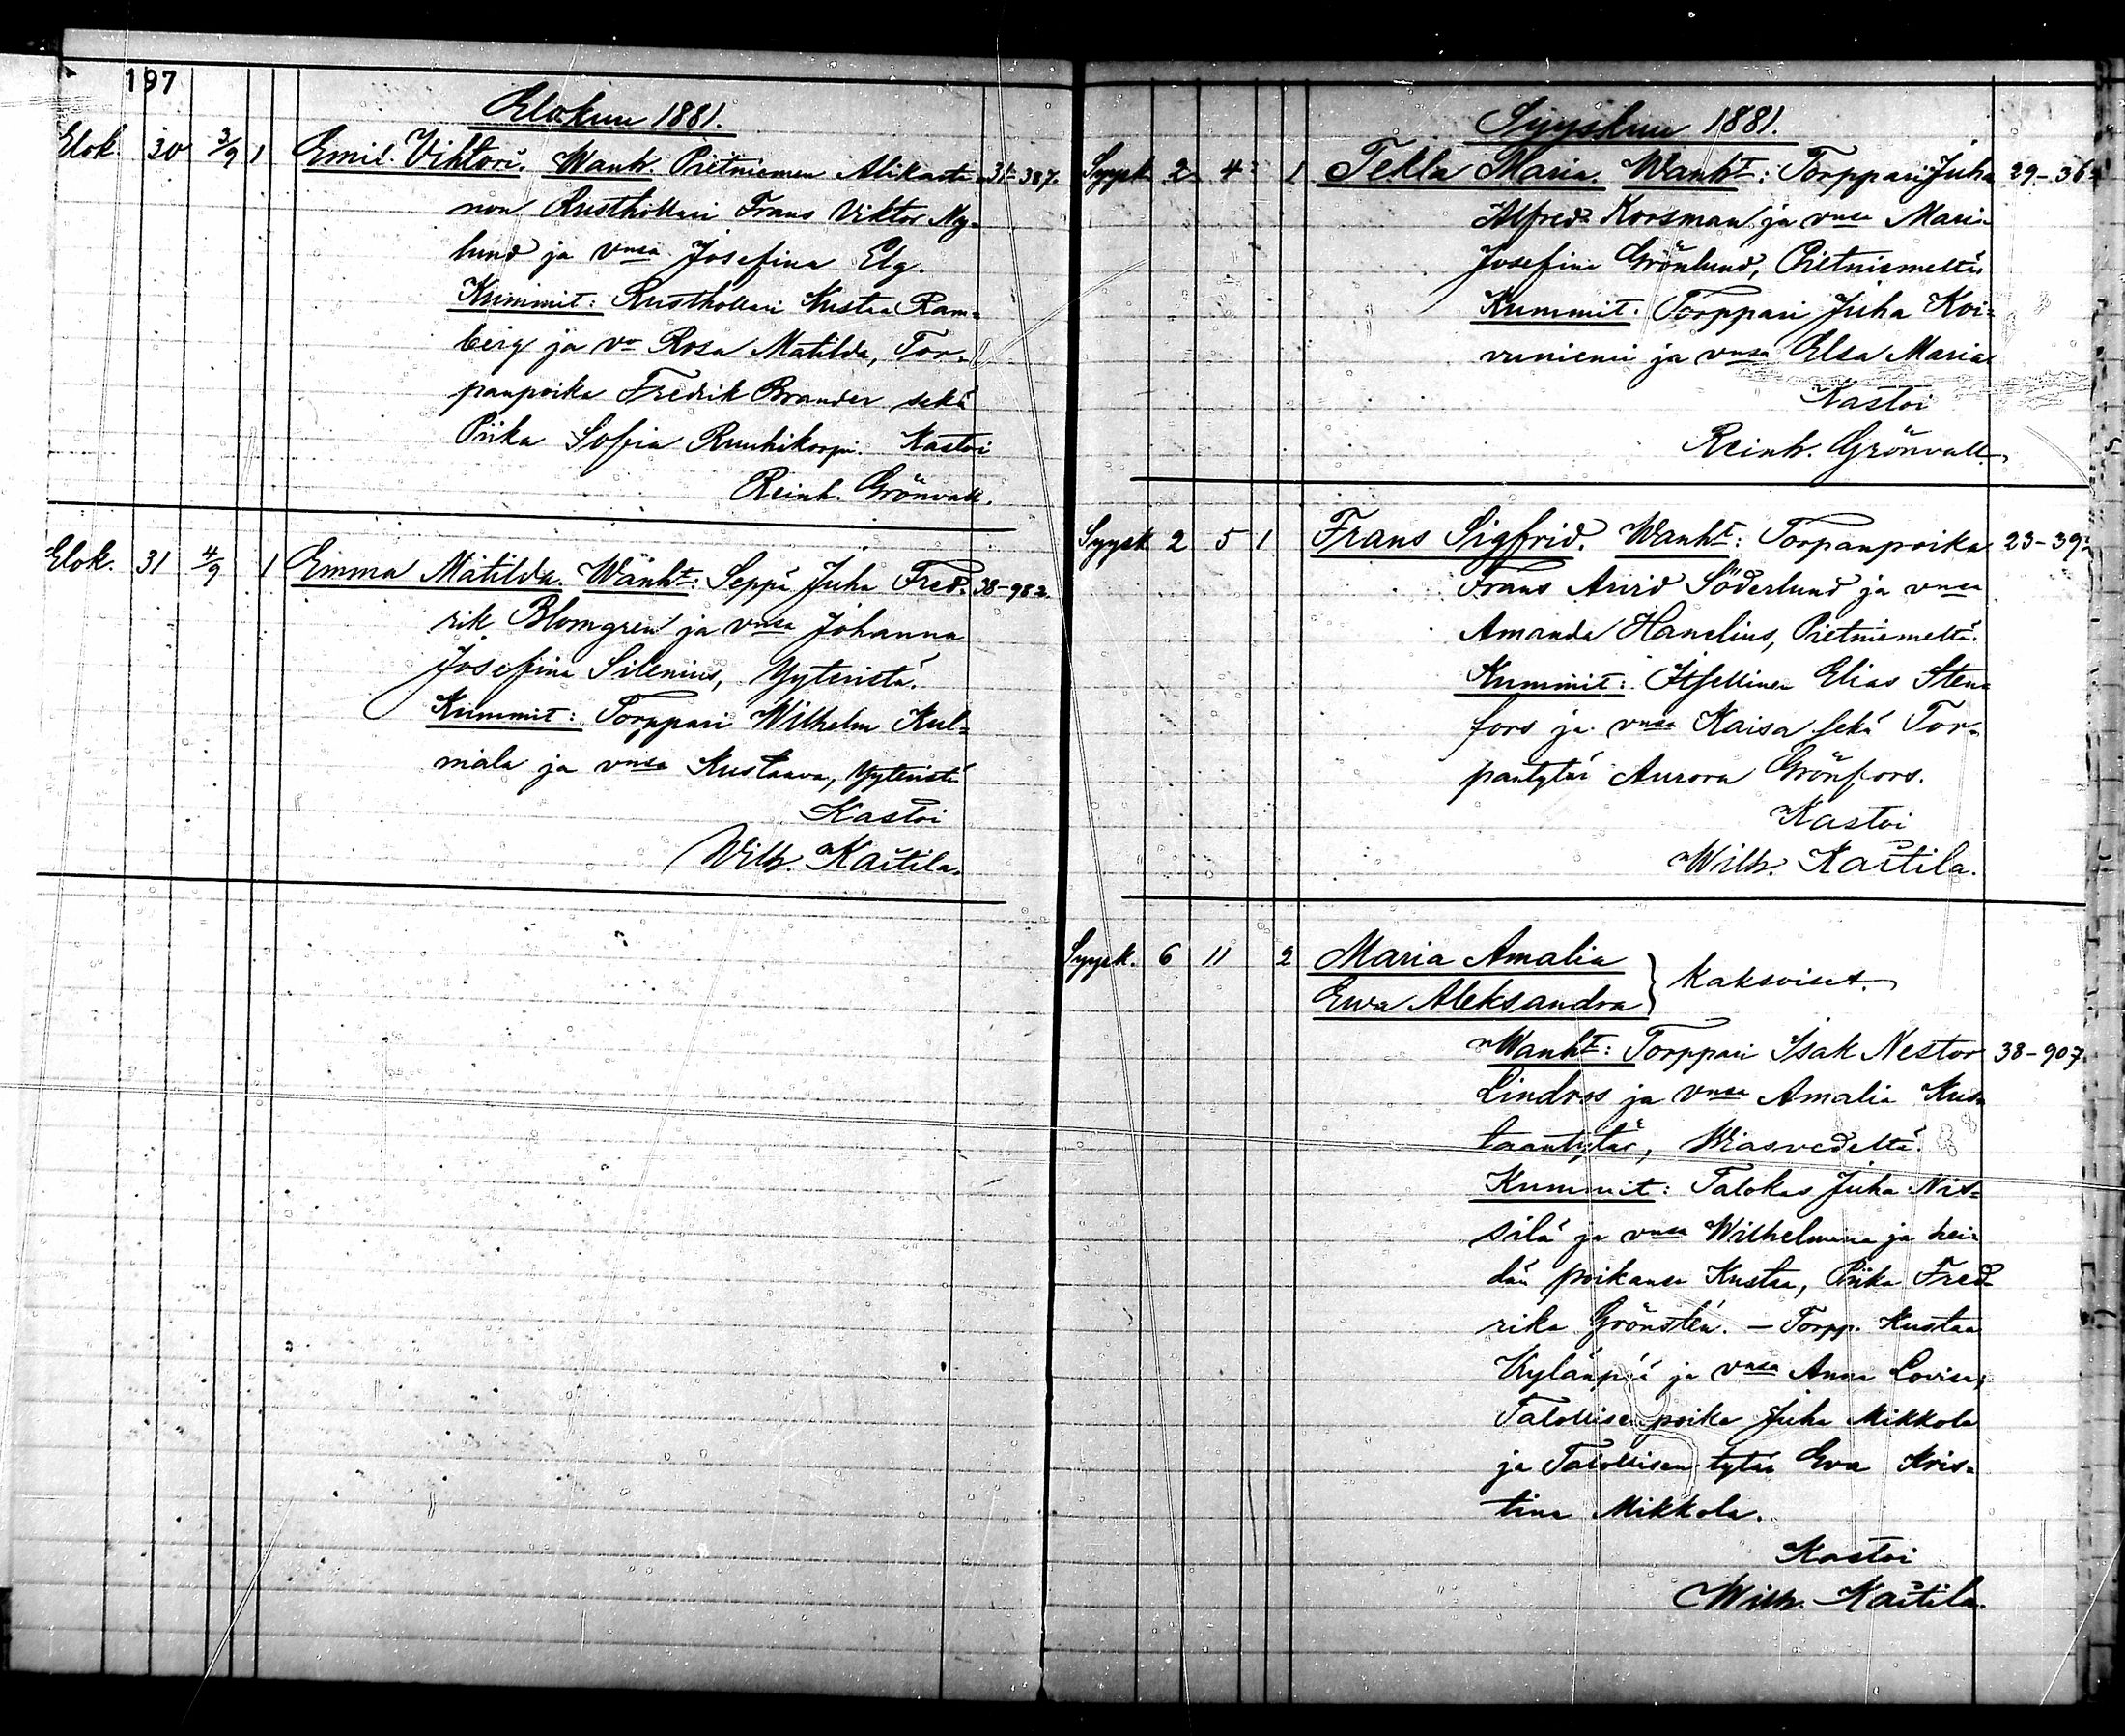 197
Elokuu 1881.
Elok. 30 3/9 1 Emil Vihtori. Wanh. Pietniemen Alikarti- 31-387.
non Rusthollari Frans Viktor Ny-
lund ja vnsa Josefina Elg.
Kummit: Rusthollari Kustaa Ram-
berg ja vo Rosa Matilda, Tor-
panpoika Fredrik Brander sekä
Piika Sofia Ruuhikorpi. Kastoi
Reinh. Grönvall.
Elok. 31 4/9 1 Emma Matilda. Wanht: Seppä Juha Fred- 38-982.
rik Blomgren ja vnsa Johanna
Josefina Silenius, Yyteristä.
Kummit: Torppari Wilhelm Kul-
mala ja vnsa Kustaava, Yyteristä
Kastoi
Wilh. Kaitila.
Syyskuu 1881.
Syysk 2 4 1 Tekla Maria. Wanht: Torppari Juha 29-36
Alfred Korsman ja vnsa Maria
Josefina Grönlund, Pietniemeltä
Kummit. Torppari Juha Koi-
vuniemi ja vnsa Elsa Maria
Kastoi
Reinh. Grönvall.
Syysk 2 5 1 Frans Sigfrid. Wanht: Torpanpoika 23-39
Frans Arvid Söderlund ja vnsa
Amanda Hanelius, Pietniemeltä.
Kummit: Itsellinen Elias Sten-
fors ja vnsa Kaisa sekä Tor-
pantytär Aurora Grönfors.
Kastoi
Wilh. Kaitila.
Syysk. 6 11 2 Maria Amalia
Ewa Aleksandra } Kaksoiset.
Wanht: Torppari Isak Nestor 38-907.
Lindros ja vnsa Amalia Kus-
taantytär, Wiasvedeltä.
Kummit: Talokas Juha Nis-
silä ja vnsa Wilhelmina ja hei-
dän poikansa Kustaa, Piika Fred-
rika Grönstén. – Torpp. Kustaa
Kylänpää ja vnsa Anna Lovisa;
Talollisen poika Juha Mikkola
ja Talollisen tytär Eva Kris-
tina Mikkola.
Kastoi
Wilh. Kaitila.